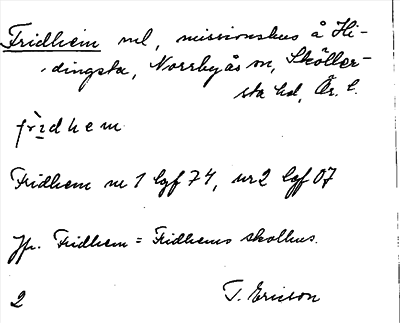 Fridhem nl, missionshus å Hi-
dingsta, Norrbyås sn, Sköller-
sta hd, Ör. l.
frìdhem
Fridhem nr 1 lgf 74, nr 2 lgf 07
Jfr. Fridhem = Fridhems skolhus.
2 T. Ericson